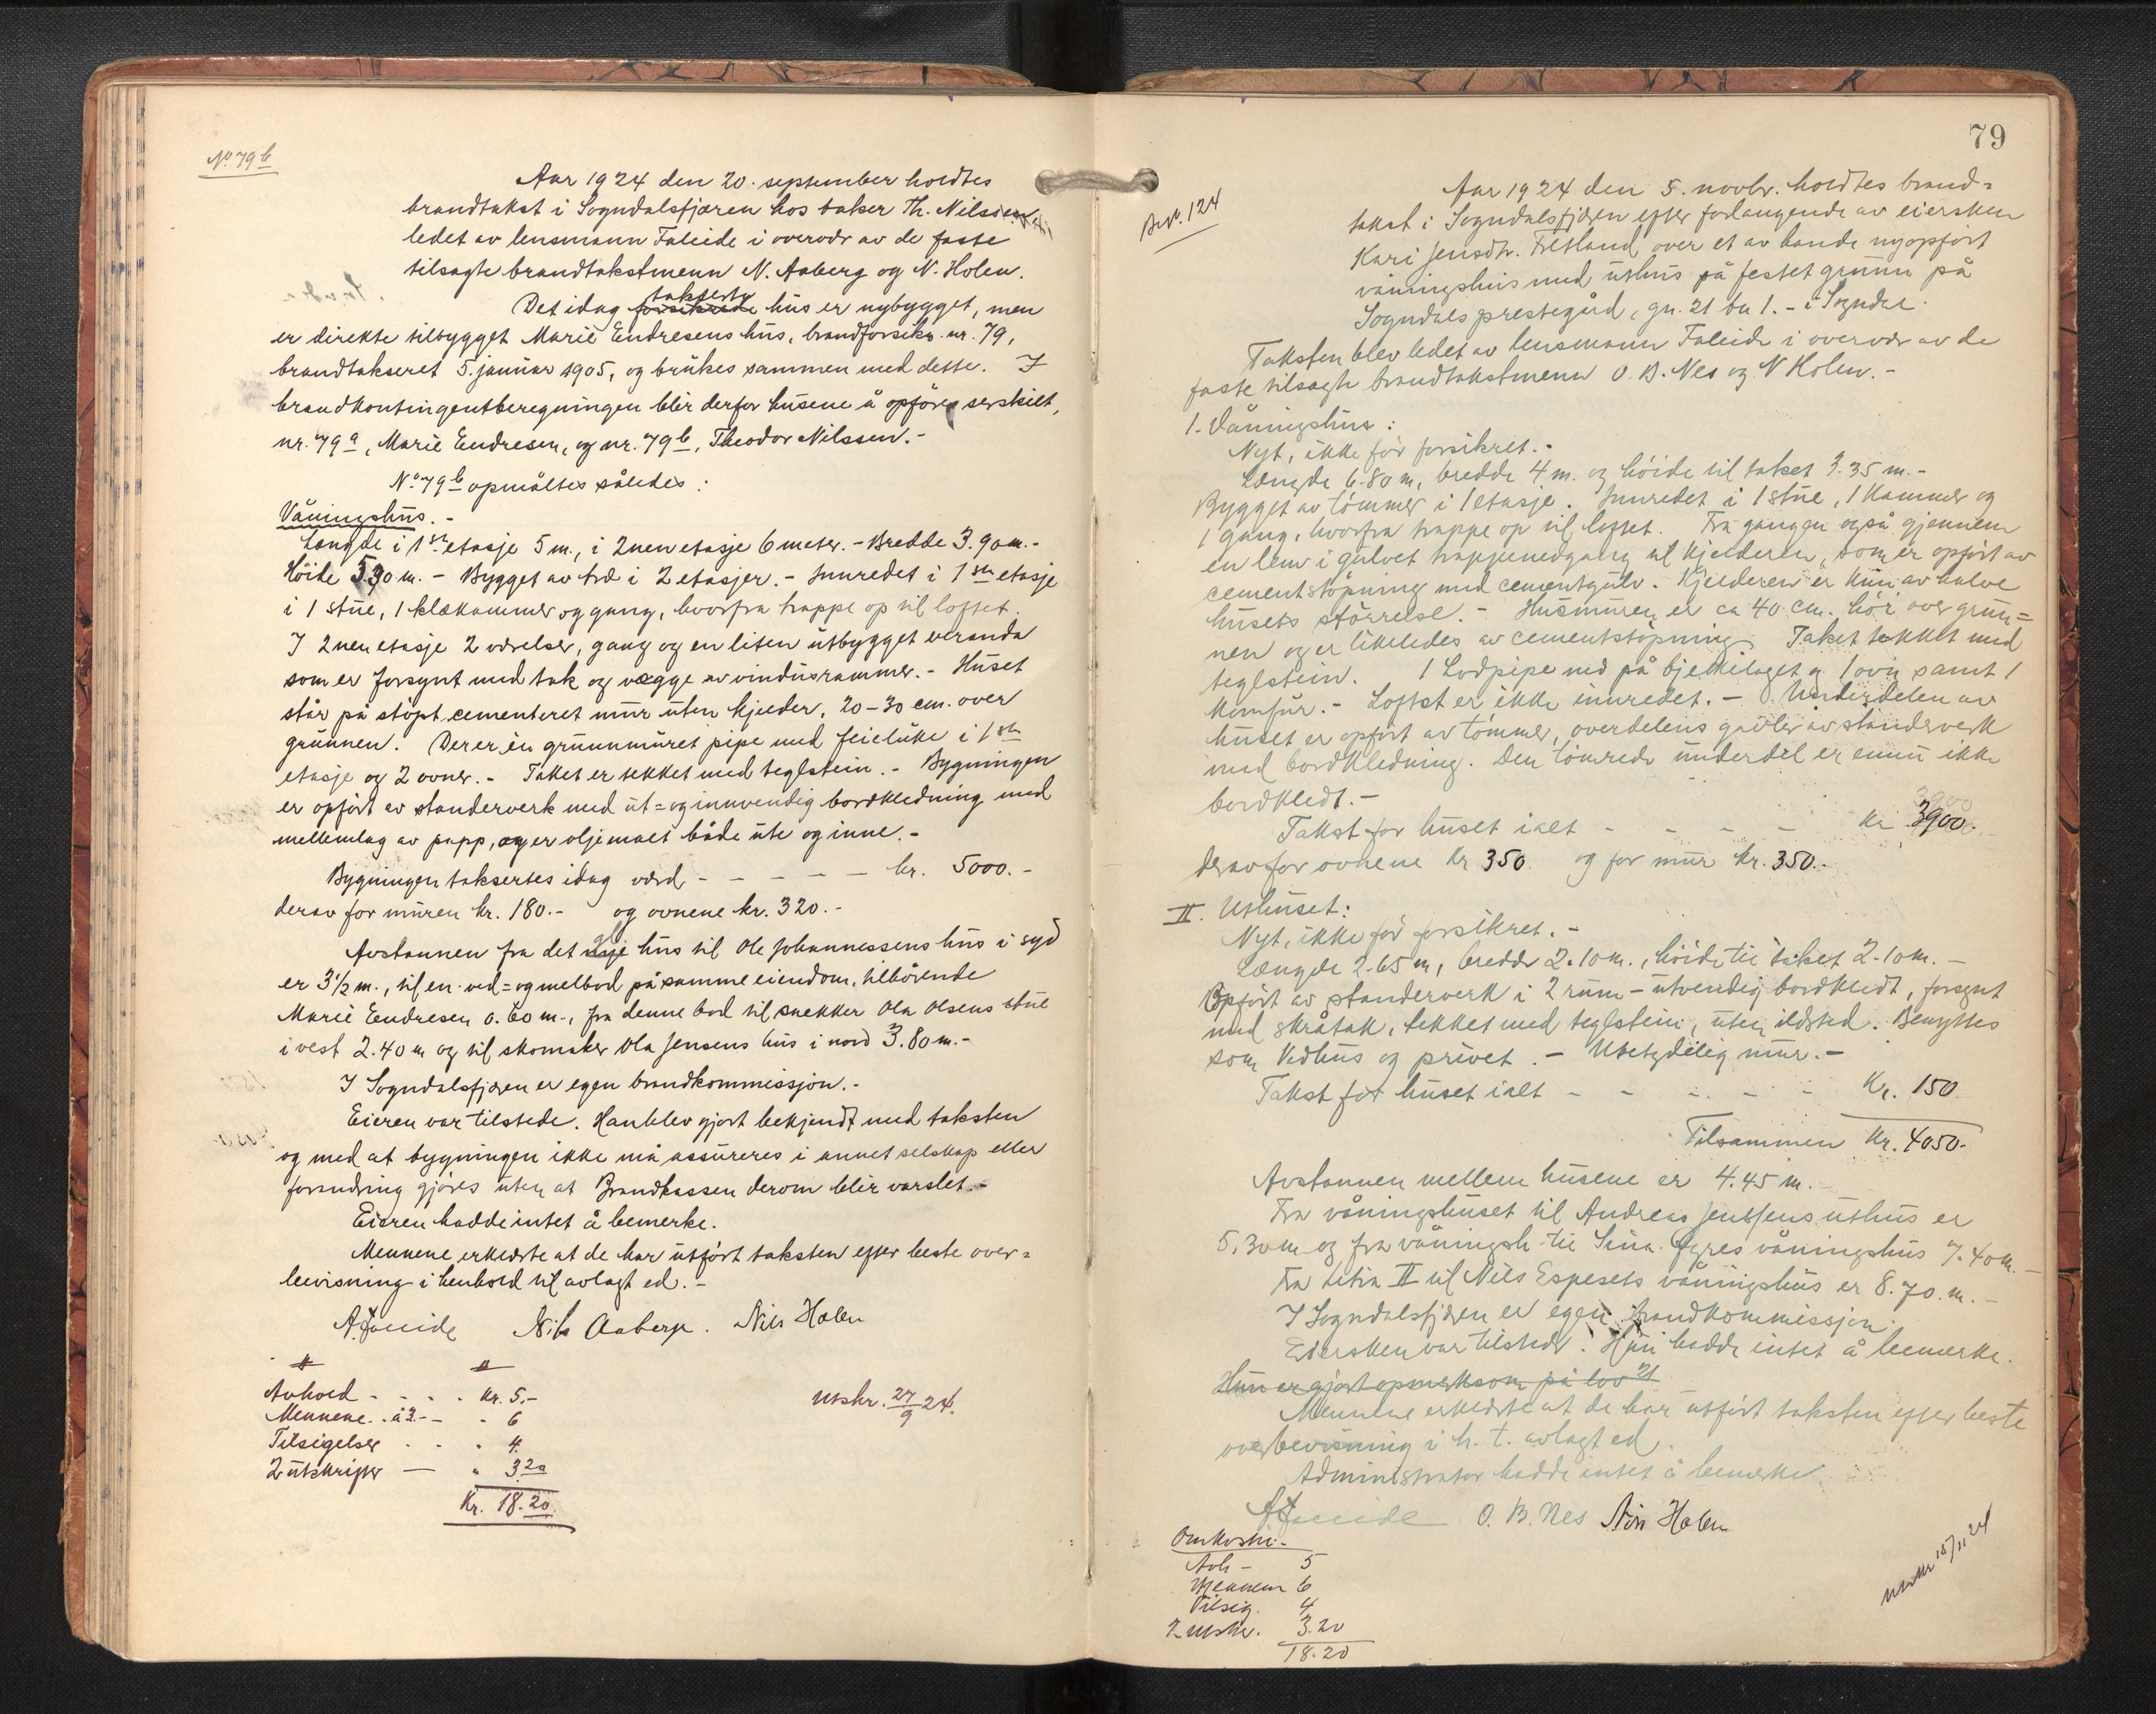 No 79 b
Aar 1924 den 20. september holdtes
brandtakst i Sogndalsfjæren hos baker Th. Nilssen,
ledet av lensmann Faleide i overvær av de faste
tilsagte brandtakstmenn N. Aaberg og N. Holen.
takserte
Det idag forsikrede hus er nybygget, men
er direkte tilbygget Marie Endresens hus, brandforsikr. nr. 79,
brandtakseret 5. januar 1905, og brukes sammen med dette. I
brandkontingentberegningen blir derfor husene å opføre serskilt,
nr. 79 a, Marie Endresen, og nr. 79 b, Theodor Nilssen.-
No 79 b opmåltes således:
Våningshus.-
Længde i 1ste etasje 5 m., i 2nen etasje 6 meter.- Bredde 3.90 m.-
Høide 5.90 m.- Bygget av træ i 2 etasjer.- Innredet i 1ste etasje
i 1 stue, 1 klækammer og gang, hvorfra trappe op til loftet.
I 2nen etasje 2 værelser, gang og en liten utbygget veranda
som er forsynt med tak og vægge av vindusrammer.- Huset
står på støpt cementeret mur uten kjelder, 20-30 cm. over
grunnen. Der er én grunnmuret pipe med feieluke i 1ste
etasje og 2 ovner.- Taket er tekket med teglstein.- Bygningen
er opført av standerverk med ut= og innvendig bordkledning med
mellemlag av papp, og er oljemalt både ute og inne.-
Bygningen taksertes idag værd - - - - - kr. 5000.-
derav for muren kr. 180.- og ovnene kr. 320.-
Avstannen fra det nye hus til Ole Johannessens hus i syd
er 3 1/2 m., til en ved= og melbod på samme eiendom, tilhørende
Marie Endresen 0.60 m., fra denne bod til snekker Ola Olsens stue
i vest 2.40 m og til skomaker Ola Jensens hus i nord 3.80 m.-
I Sogndalsfjæren er egen brandkommissjon.-
Eieren var tilstede. Han blev gjort bekjendt med taksten
og med at bygningen ikke må assureres i annet selskap eller
forandring gjøres uten at Brandkassen derom blir varslet.-
Eieren hadde intet å bemerke.
Mennene erklærte at de har utført taksten efter beste over=
bevisning i henhold til avlagt ed.-
A. Faleide Nils Aaberge. Nils Holen
Avhold - - - - Kr. 5.-
Mennene . à 3.- - " 6
Tilsigelser . . " 4.
2 utskrifter — " 3.20
Kr. 18.20
Utskr. 27/9 24.
79
Bev. 124
Aar 1924 den 5. novbr. holdtes brand=
takst i Sogndalsfjæren efter forlangende av eiersken
Kari Jensdtr. Fretland over et av hende nyopført
våningshus med uthus på festet grunn på
Sogndals prestegård, gn. 21 bn 1.- i Sogndal.
Taksten blev ledet av lensmann Faleide i overvær av de
faste tilsagte brandtakstmenn O. B. Nes og N Holen.-
1. Våningshus:
Nyt, ikke før forsikret.-
Længde 6.80 m, bredde 4 m. og høide til taket 3.35 m.-
Bygget av tømmer i 1 etasje. Innredet i 1 stue, 1 Kammer og
1 gang, hvorfra trappe op til loftet. Fra gangen også gjennem
en lem i gulvet trappenedgang til Kjelderen, som er opført av
cementstøpning med cementgulv. Kjelderen er kun av halve
husets størrelse.- Husmuren er ca 40 cm. høi over grun=
nen og er likeledes av cementstøpning. Taket tekket med
teglstein. 1 Lodpipe ned på bjelkelaget og 1 ovn samt 1
Komfur.- Loftet er ikke innredet.- Underdelen av
huset er opført av tømmer, overdelens gavler av standerverk
med bordkledning. Den tømrede underdel er ennu ikke
bordkledt.-
Takst for huset ialt - - - - kr 3900.
derav for ovnene kr 350. og for mur kr. 350.-
II. Uthuset:
Nyt, ikke før forsikret.-
Længde 2.65 m, bredde 2.10 m., høide til taket 2.10 m.-
Opført av standerverk i 2 rum - utvendig bordkledt, forsynt
med skråtak, tekket med teglstein, uten ildsted. Benyttes
som Vedhus og privet.- Ubetydelig mur.-
Takst for huset ialt - - - - - Kr. 150
Tilsammen Kr. 4050.-
Avstannen mellem husene er 4.45 m.
Fra våningshuset til Andreas Jentsens uthus er
5.30 m og fra våningsh. til Sina Øyres våningshus 7.40 m.
Fra Litra II til Nils Espesets våningshus er 8.70 m.-
I Sogndalsfjæren er egen brandkommissjon.
Eiersken var tilstede. Hun hadde intet å bemerke.
Hun er gjort opmerksom på lov
Mennene erklærte at de har utført taksten efter beste
overbevisning i h. t. avlagt ed.
Administrator hadde intet å bemerke.
A Faleide O. B. Nes Nils Holen
Omkostn.-
Avh- 5
Mennene 6
Tilsig. 4
2 utskr. 3.20
18.20
utskr 15/11 24